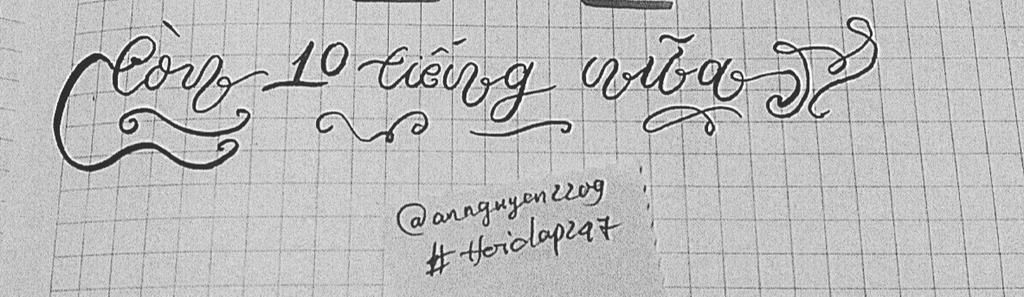 Còn 10 tiếng nữa
@annguyen2209
#Hoidap247